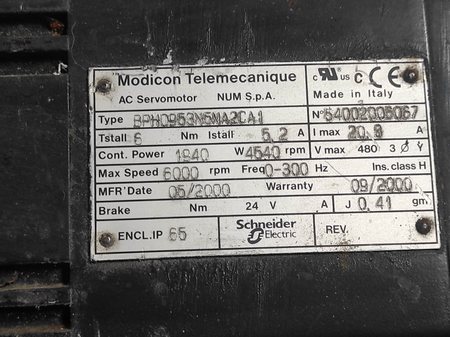 Modicon Telemecanique
c UR us C CE
AC Servomotor NUM S.p.A. Made in Italy
Type BPH0953N5MA2CA1 N° 64002005067
Tstall 6 Nm Istall 5,2 A I max 20,8 A
Cont. Power 1940 W 4540 rpm V max 480 3 Ø Y
Max Speed 6000 rpm Freq 0-300 Hz Ins. class H
MFR'Date 05/2000 Warranty 09/2000
Brake Nm 24 V A J 0,41 gm²
ENCL.IP 65 Schneider Electric REV.